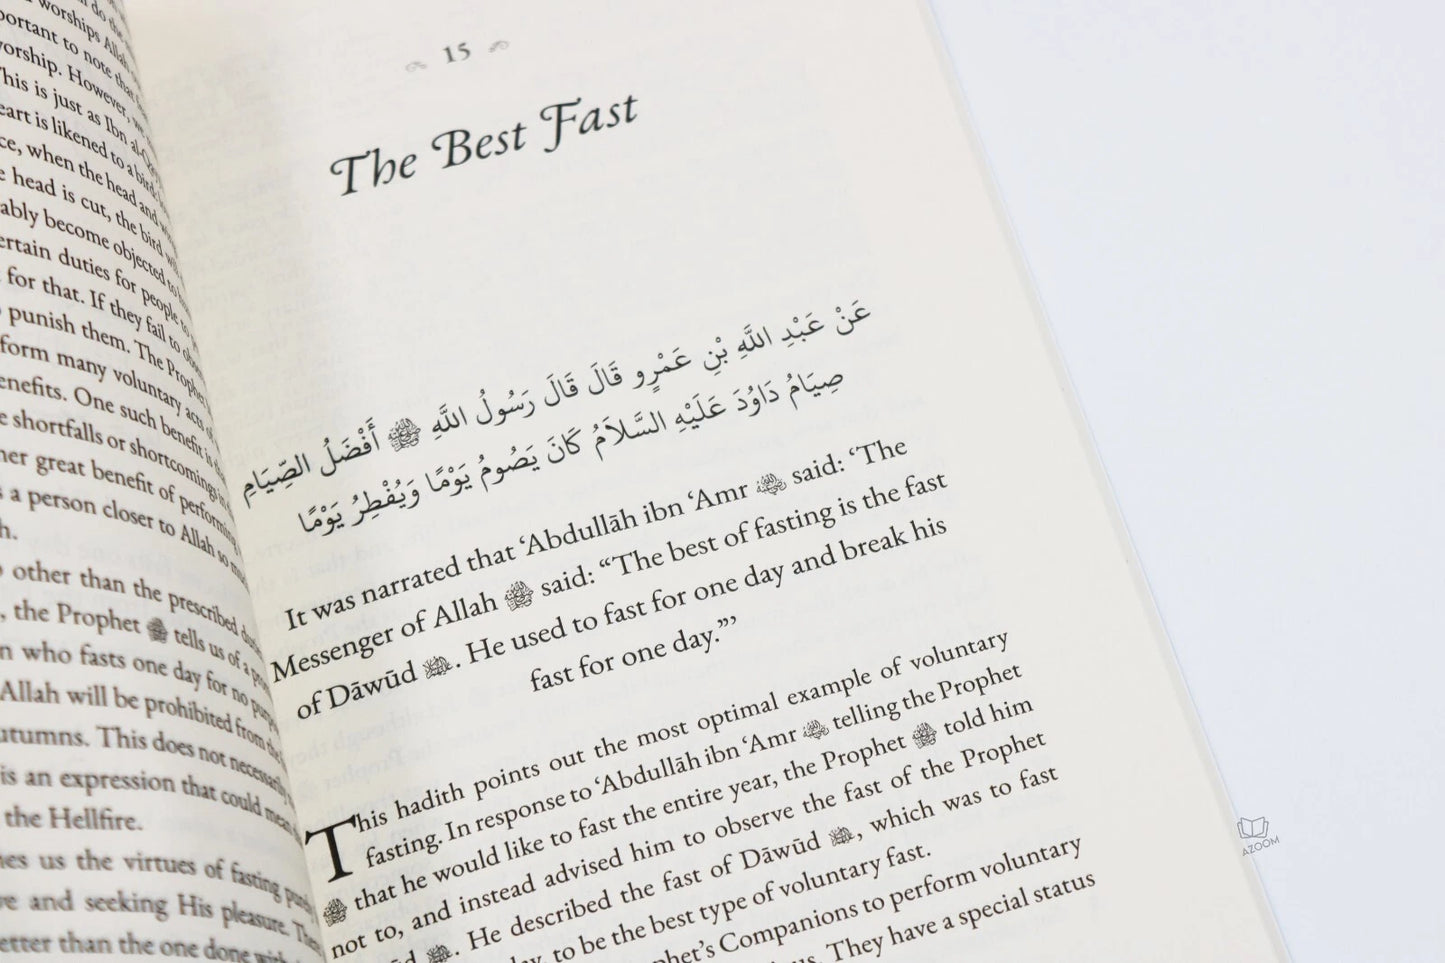 do the
worships Allah
portant to note that
worship. However, we
This is just as Ibn al-
heart is likened to a bird:
ce, when the head and
e head is cut, the bird will
ably become objected to
ertain duties for people to
for that. If they fail to
punish them. The Prophet
form many voluntary acts of
enefits. One such benefit is
e shortfalls or shortcomings in
her great benefit of performing
s a person closer to Allah so
h.
other than the prescribed
, the Prophet ﷺ tells us of a
n who fasts one day for no
Allah will be prohibited from the
utumns. This does not necessarily
is an expression that could mean
the Hellfire.
hes us the virtues of fasting purely
ve and seeking His pleasure.
etter than the one done with
15
The Best Fast
عَنْ عَبْدِ اللَّهِ بْنِ عَمْرٍو قَالَ قَالَ رَسُولُ اللَّهِ ﷺ أَفْضَلُ الصِّيَامِ
صِيَامُ دَاوُدَ عَلَيْهِ السَّلاَمُ كَانَ يَصُومُ يَوْمًا وَيُفْطِرُ يَوْمًا
It was narrated that ‘Abdullāh ibn ‘Amr said: ‘The
Messenger of Allah ﷺ said: “The best of fasting is the fast
of Dāwūd . He used to fast for one day and break his
fast for one day.”’
This hadith points out the most optimal example of voluntary
fasting. In response to ‘Abdullāh ibn ‘Amr telling the Prophet
ﷺ that he would like to fast the entire year, the Prophet ﷺ told him
not to, and instead advised him to observe the fast of the Prophet
d . He described the fast of Dāwūd , which was to fast
day, to be the best type of voluntary fast.
phet’s Companions to perform voluntary
us. They have a special status
AZOOM